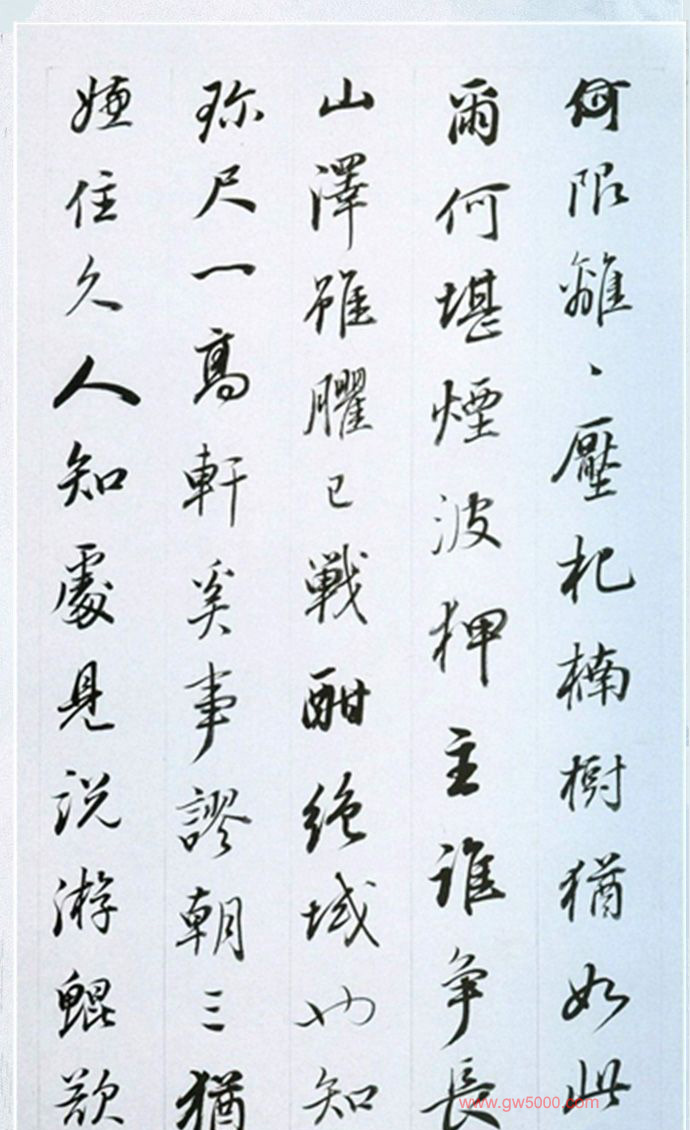 何限離、壓杞楠樹猶如此
爾何堪煙波押主誰爭長
山澤雖臞已戰酣絕域也知
珎尺一高軒奚事謬朝三猶
嫌住久人知處見說游鯤欲
www.gw5000.com